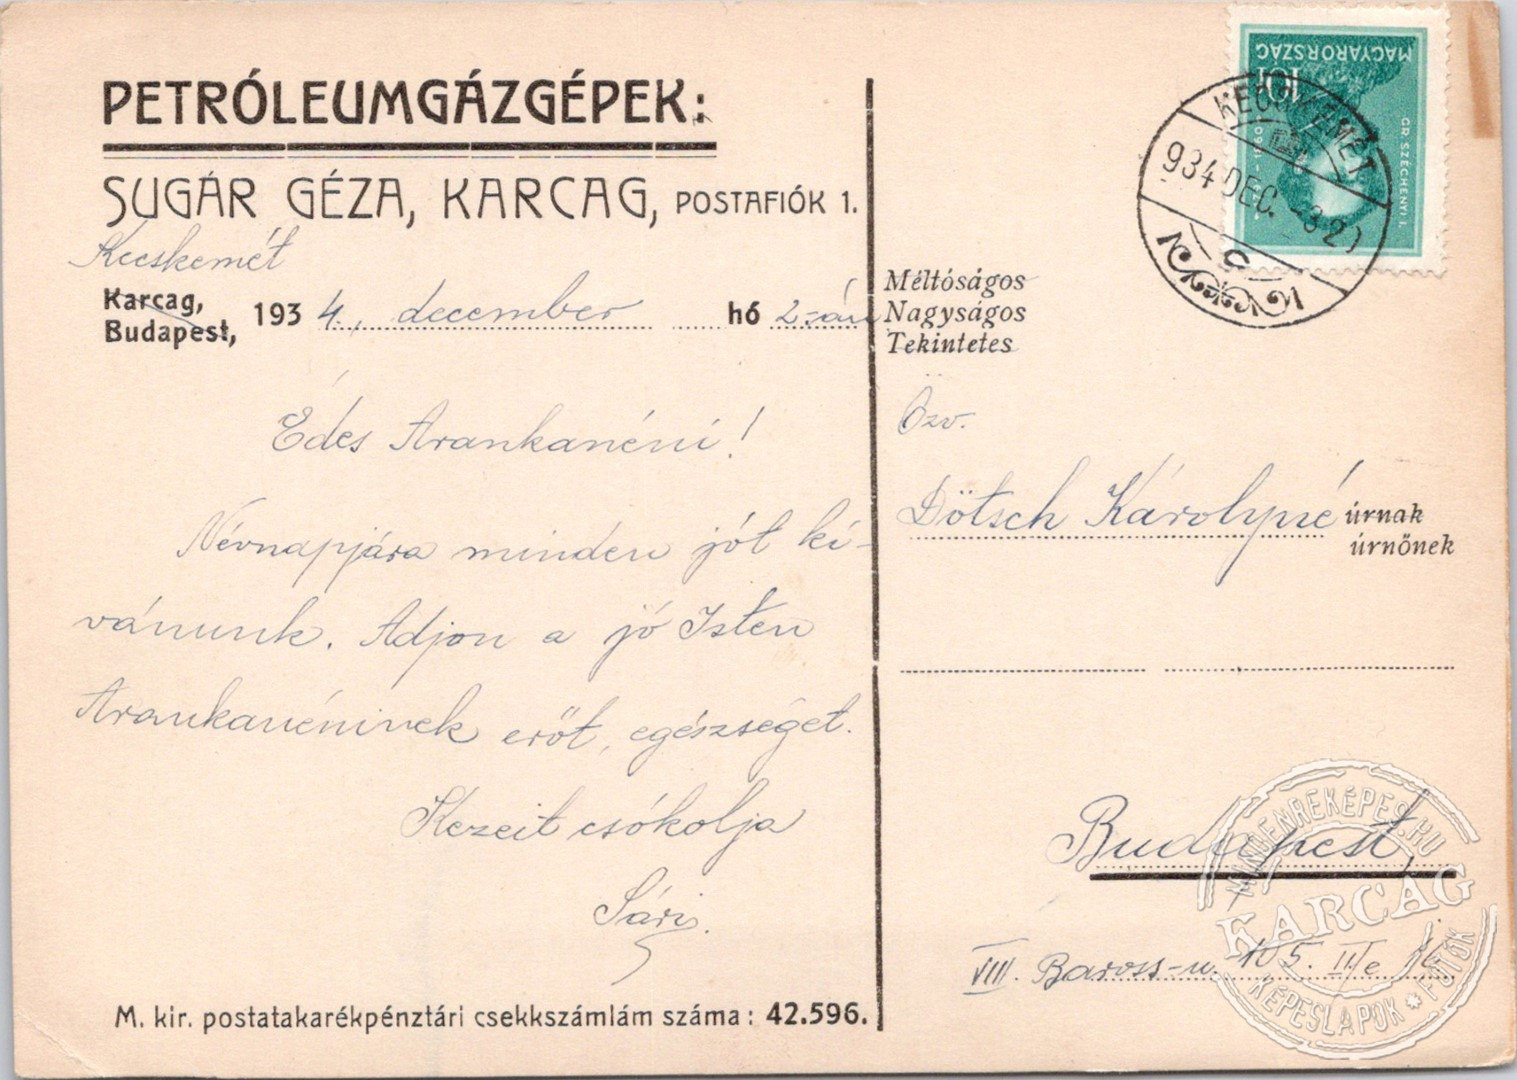 PETRÓLEUMGÁZGÉPEK:
SUGÁR GÉZA, KARCAG, POSTAFIÓK 1.
Kecskemét
Karcag,
Budapest, 1934., december hó 2-án
Édes Arankanéni!
Névnapjára minden jót kí-
vánunk. Adjon a jó Isten
Arankanéninek erőt, egészséget.
Kezeit csókolja
Sári.
M. kir. postatakarékpénztári csekkszámlám száma: 42.596.
MAGYARORSZÁG
10f
GR. SZÉCHENYI I.
KECSKEMÉT
934 DEC. -3 2
Méltóságos
Nagyságos
Tekintetes
Özv.
Dötsch Károlyné úrnak
úrnőnek
Budapest,
VIII. Baross-u. 105. II/e
MINDENREKÉPES.HU
KARCAG
KÉPESLAPOK * FOTÓK